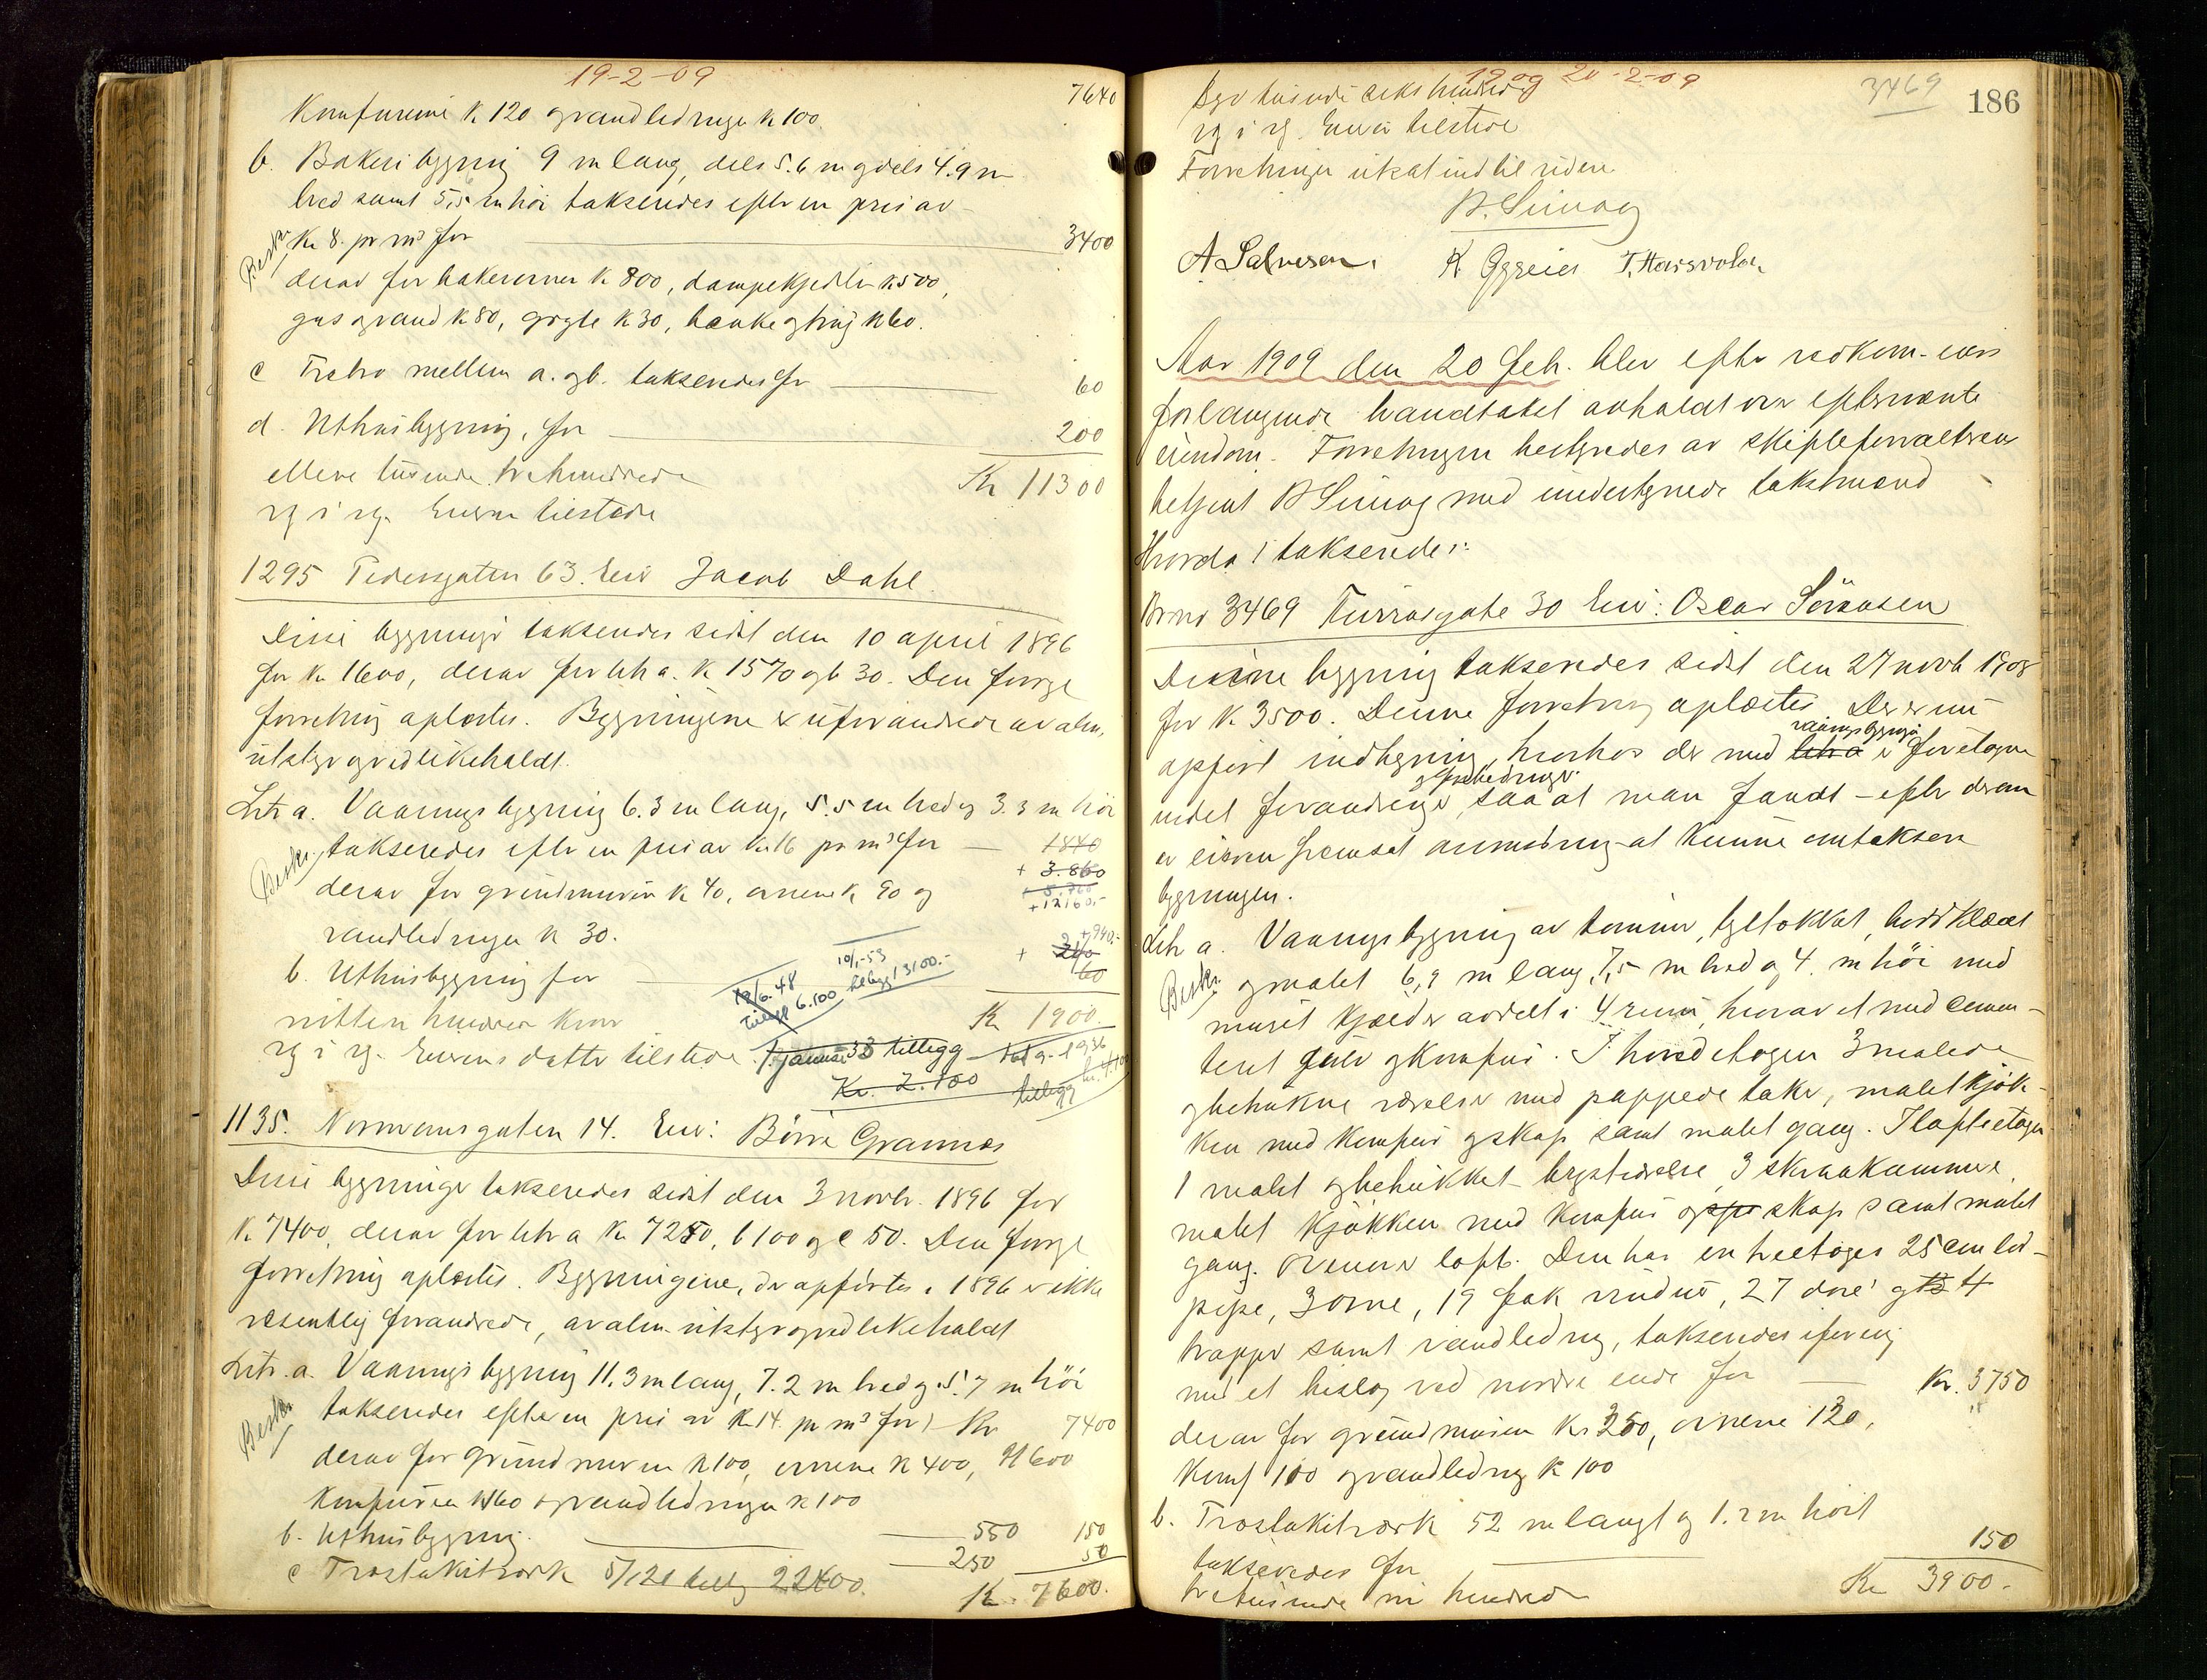 19-2-09
7640
Komfurene k 120 og vandledninge k 100.
b. Bakeribygning 9 m lang, dels 5.6 m og dels 4.9 m
bred samt 5,5 m höi takseredes efter en pris av
Beskr. Kr 8. pr m³ for 3400
derav for bakerovnen k 800, dampekjedlen k 500,
gas og vand k 80, gryte k 30, bænke og traug k 60.
c Trebro mellem a. og b. takseredes for 60
d. Uthusbygning, for 200
elleve tusende trehundrede Kr 11300
rg i rg. Eieren tilstede
1295 Pedersgaten 63. Eier Jacob Dahl
Disse bygninger takseredes sidst den 10 april 1896
for kr 1600, derav for litr a. k 1570 og b 30. Den forrige
forretning oplæstes. Bygningene er uforandrede av alm.
utstyr og vedlikeholdt.
Litr a. Vaaningsbygning 6.3 m lang, 5.5 m bred og 3.3 m höi
Beskr. takseredes efter en pris av kr 16 pr m³ for 1840
+ 3.860
derav for grundmuren k 40, ovnene k 90 og
+ 12160.-
vandledningen k 30.
+ 940.-
b. Uthusbygning for 60
10/1-53 tilbygg 13100.-
18/6.48 Tillegg 6.100
nitten hundrede kroner Kr 1900.
rg i rg. Eierens datter tilstede. 7. januar 33 tillegg
Kr. 2.100 tillegg
1135. Normannsgaten 14. Eier: Börre Grannes
Disse bygninger takseredes sidst den 3 novbr. 1896 for
k 7400, derav for litr a kr 7250, b 100 og c 50. Den forrige
forretning oplæstes. Bygningene, der opförtes i 1896 er ikke
væsentlig forandrede, av alm. utstyr og vedlikeholdt
Litr. a. Vaaningsbygning 11.3 m lang, 7.2 m bred og 5.7 m höi
Beskr. takseredes efter en pris av kr 14. pr m³ for Kr 7400
derav for grundmuren k 100, ovnene k 400, 21600
komfuren k 60 og vandledningen k 100
b. Uthusbygning. 550 150
c Træstakitverk 5/1 21 tillegg 22400. 250 50
Kr. 7600.
19 og 20-2-09
3469
186
Syv tusende seks hundrede
rg i rg. Eieren tilstede
Forretningen utsat indtil videre
A Salvesen. K Ggreier T. Hansvoldn
Aar 1909 den 20 Feb. blev efter vedkom. eiers
forlangende brandtakst avholdt over efternævnte
eiendom. Forretningen bestyredes av skifteforvalterens
betjent med undertegnede takstmænd
Hvorda i takseredes:
Brnr 3469 Kirrasgate 30 Eier: Oscar Sörensen
Denne bygning takseredes sidst den 27 novb 1908
for k 3500. Denne forretning oplæstes. Der er nu
opfört indhegning, hvorhos der med litr a vaaningsbygnin er foretagne
endel forandringer og forbedringer, saa at man fandt – efter derom
er eieren fremsat anmodning – at kunne omtaksere
bygningen.
Litr a. Vaaningsbygning av tömmer, tegltækket, bordklædt
Beskr. og malet 6,9 m lang, 7,5 m bred og 4. m höi med
muret kjælder avdelt i 4 rum, hvorav et med cemen-
tert gulv og komfur. I hovedetagen 3 malede
og betrukne værelser med pappede taker, malet kjök-
ken med komfur og skap samt malet gang. I loftsetagen
1 malet og betrukket kvistværelse, 3 skraakammere,
malet kjökken med komfur og skap samt malet
gang. Ovenover loft. Den har en treetages 25 cm lod-
pipe, 3 ovne, 19 fak vinduer, 27 döre og 4
trapper samt vandledning, takseredes iberegnet
med et bislag ved nordre ende for Kr. 3750
derav for grundmuren Kr 350, ovnene 120,
komf 100 og vandledning k 100
b. Træstakitverk 52 m langt og 1.2 m höit
takseredes for 150
tretusende ni hundrede Kr 3900.-